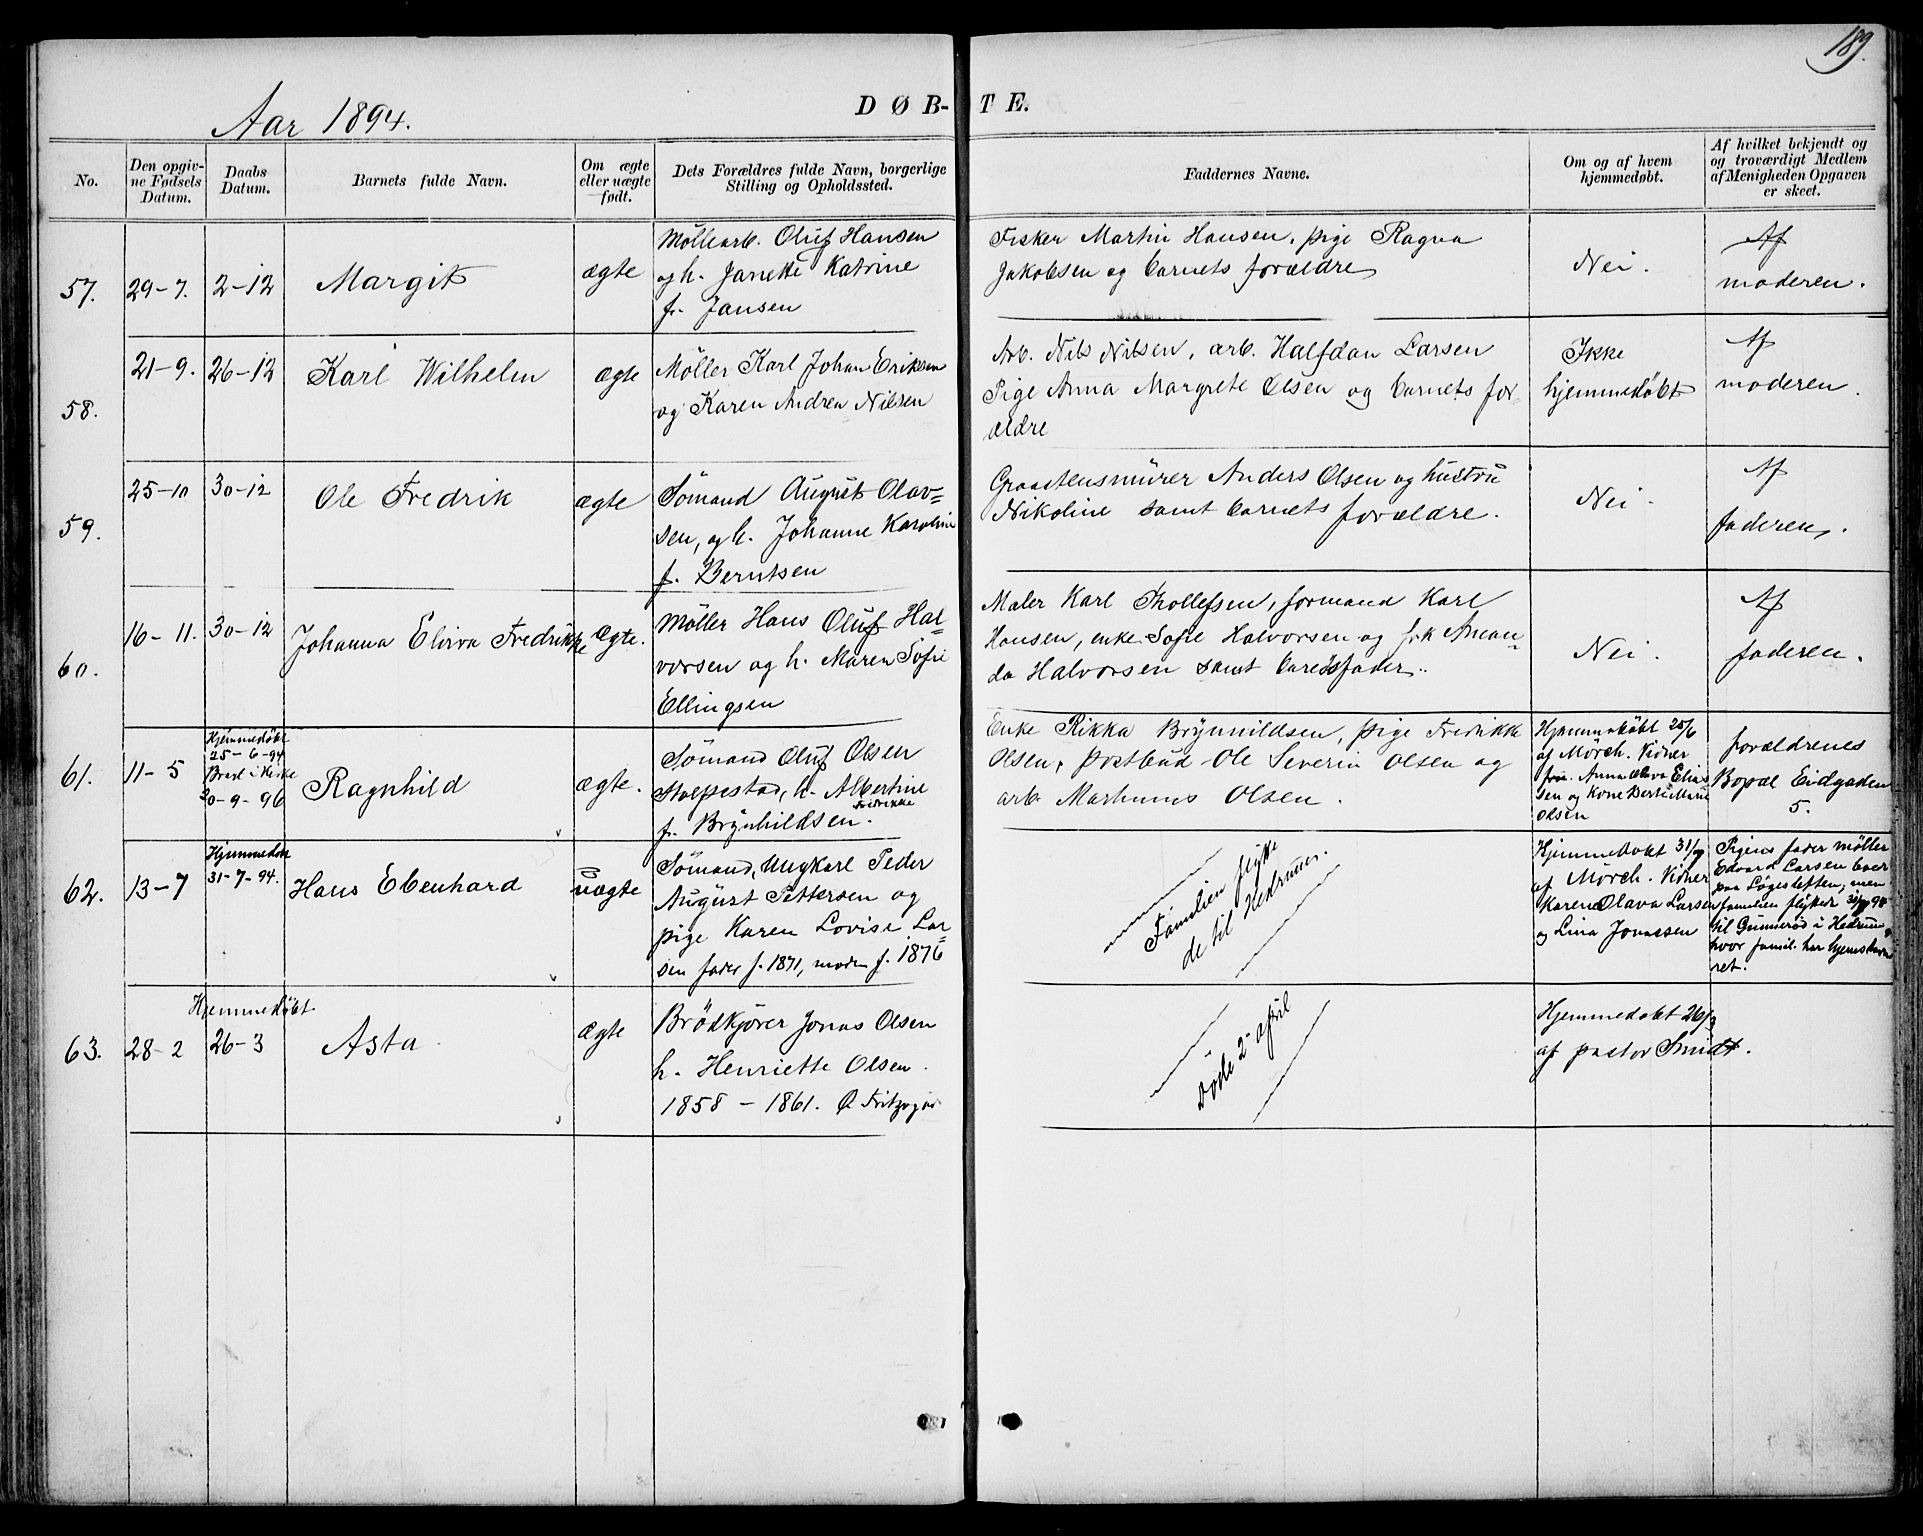 189.
Aar 1894.
DØB-TE.
No.
Den opgivne Fødsels Datum.
Daabs Datum.
Barnets fulde Navn.
Om ægte eller uægte født.
Dets Forældres fulde Navn, borgerlige Stilling og Opholdssted.
Faddernes Navne.
Om og af hvem hjemmedøbt.
Af hvilket bekjendt og og troværdigt Medlem af Menigheden Opgaven er skeet.
57.
29-7.
2-12
Margit
ægte
Möllearb. Oluf Hansen
og h. Janette Katrine
f. Jansen
Fisker Martin Hansen, pige Ragna
Jakobsen og barnets forældre
Nei.
Af
moderen.
58.
21-9.
26-12
Karl Wilhelm
ægte
Møller Karl Johan Eriksen
og Karen Andrea Nilsen
Arb. Nils Nilsen, arb. Halfdan Larsen
Pige Anna Margrete Olsen og barnets for-
ældre
Ikke
hjemmedøbt
Af
moderen.
59.
25-10
30-12
Ole Fredrik
ægte
Sömand August Olav-
sen, og h. Johanne Karoline
f. Berntsen
Graastensmürer Anders Olsen og hustru
Nikoline samt barnets forældre.
Nei.
Af
faderen.
60.
16-11.
30-12
Johanna Elvira Fredrikke
Ægte.
Møller Hans Oluf Hal-
vorsen og h. Maren Sofie
Ellingsen
Maler Karl Thollefsen, formand Karl
Hansen, enke Sofie Halvorsen og frk Aman-
da Halvorsen samt barnetsfader.
Nei.
Af
faderen.
61.
11-5
Hjemmedøbt
25-6-94
20-9-96
Ragnhild
ægte.
Sømand Oluf Olsen
h. Albertine
Fredrikke
f. Brynhildsen.
Enke Rikka Brynnildsen, pige Fredrikke
Olsen, postbud Ole Severin Olsen og
arb. Marhinus Olsen.
Hjemmedøbt 25/6
af Mørch. Vidner
Anna Olava Elias
sen og Kone Berte Marie
Olsen
forældrenes
Bopæl Eidgaden
5.
62.
13-7
Hjemmedøbt
31-7-94.
Hans Ebenhard
uægte
Sømand, Ungkarl Peder
August Pettersen og
pige Karen Lovise Lar-
sen fader f. 1871, moder f. 1876
Familien flytte
de til Hedrum.
Hjemmedøbt 31/7
af Mörch. Vidner
Karen Olava Larsen
og Lina Jonassen
Pigens fader møller
Edvard Larsen boer
paa Løgesletten, men
familien flytted 31/7 94
til Gunnerød i Hedrum,
hvor famil. har hjemstavns
ret.
63.
28-2
Hjemmedøbt.
26-3
Asta
Ægte
Brödkjører Jonas Olsen
h. Henriette Olsen.
1858 - 1861.
Døde 2 april
Hjemmedøbt 26/3
af pastor Smidt.